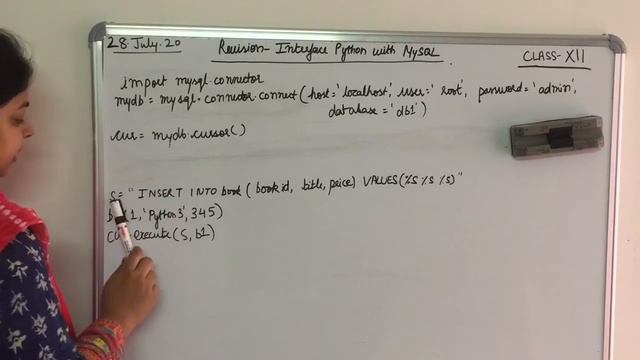 28. July. 20
Revision- Interface Python with MySQL
CLASS- XII
import mysql.connector
mydb = mysql.connector.connect (host='localhost', user='root', password='admin',
database = 'db1')
cur = mydb.cursor()
s= " INSERT INTO book ( book id, title, price) VALUES (%s %s %s) "
(1, 'Python3', 345)
execute (s, b1)